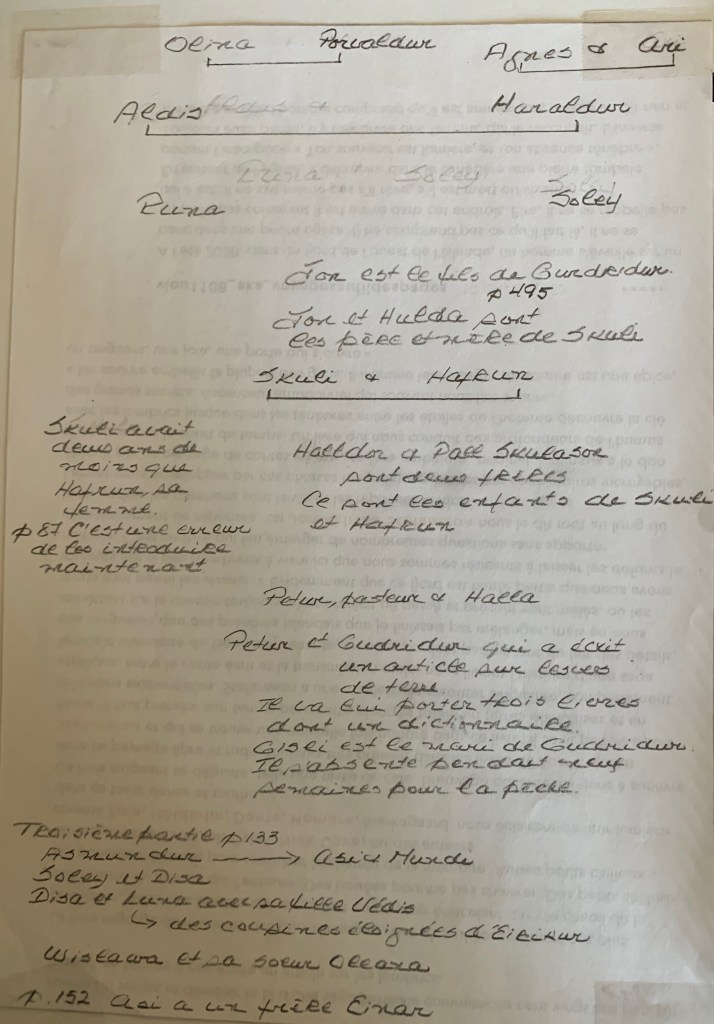 Olina Þorvaldur Agnes & Ari
Aldis & Haraldur
Runa Soley
Jon est le fils de Gurdridur.
p 495
Jon et Hulda sont
les père et mère de Skuli
Skuli & Hafrun
Skuli avait
deux ans de
moins que
Hafrun, sa
femme.
p 87 C'est une erreur
de les introduire
maintenant
Halldor & Pall Skulason
sont deux frères
Ce sont les enfants de Skuli
et Hafrun
Petur, pasteur & Halla
Petur et Gudridur qui a écrit
un article sur les vers
de terre.
Il va lui porter trois livres
dont un dictionnaire.
Gisli est le mari de Gudridur.
Il s'absente pendant neuf
semaines pour la pêche.
Troisième partie p 133
Asmundur → Asi & Mundi
Soley et Disa
Disa et Luna avec sa fille Védis
↳ des cousines éloignées d'Eirikur
Wislawa et sa soeur Oleana
p. 152 Asi a un frère Einar